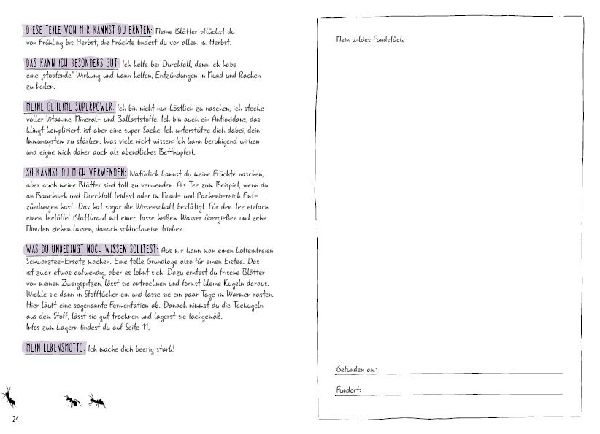 DIESE TEILE VON MIR KANNST DU ERNTEN: Meine Blätter pflückst du
von Frühling bis Herbst, die Früchte findest du vor allem im Herbst.
DAS KANN ICH BESONDERS GUT: Ich helfe bei Durchfall, denn ich habe
eine „stopfende“ Wirkung und kann helfen, Entzündungen in Mund und Rachen
zu heilen.
MEINE GEHEIME SUPERPOWER: Ich bin nicht nur köstlich zu naschen, ich stecke
voller Vitamine Mineral- und Ballaststoffe. Ich bin auch ein Antioxidans, das
klingt kompliziert, ist aber eine super Sache. Ich unterstütze dich dabei, dein
Immunsystem zu stärken. Was viele nicht wissen: Ich kann beruhigend wirken
und eigne mich daher auch als abendliches Betthupferl.
SO KANNST DU MICH VERWENDEN: Natürlich kannst du meine Früchte naschen,
aber auch meine Blätter sind toll zu verwenden. Als Tee zum Beispiel, wenn du
an Bauchweh und Durchfall leidest oder im Mund- und Rachenbereich Ent-
zündungen hast. Das hat sogar die Wissenschaft bestätigt. Für den Tee einfach
einen Teelöffel Blattkraut mit einer Tasse heißem Wasser übergießen und zehn
Minuten ziehen lassen, danach schluckweise trinken.
WAS DU UNBEDINGT NOCH WISSEN SOLLTEST: Aus mir kann man einen koffeinfreien
Schwarztee-Ersatz machen. Eine tolle Grundlage also für einen Eistee. Das
ist zwar etwas aufwendig, aber es lohnt sich. Dazu erntest du frische Blätter
von meinen Zweigspitzen, lässt sie antrocknen und formst kleine Kugeln daraus.
Wickle sie dann in Stofftücher ein und lasse sie ein paar Tage im Warmen rasten.
Hier läuft eine sogenannte Fermentation ab. Danach nimmst du die Teekugeln
aus dem Stoff, lässt sie gut trocknen und lagerst sie sachgemäß.
Infos zum Lagern findest du auf Seite 11.
MEIN LEBENSMOTTO: Ich mache dich beerig stark!
24
Mein wildes Fundstück:
Gefunden am:
Fundort: